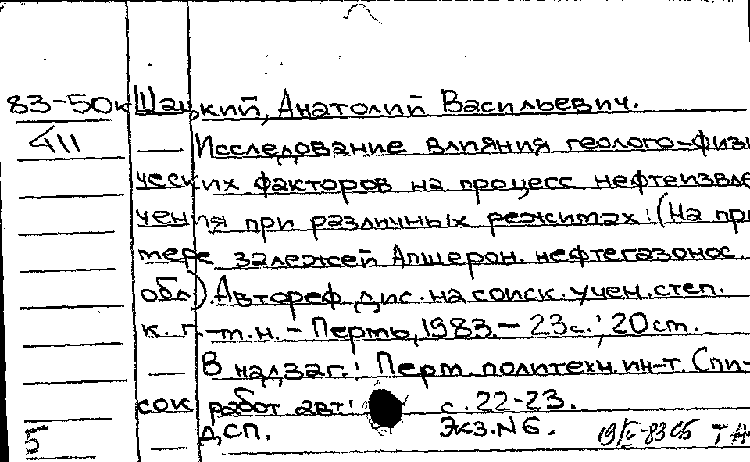 83-50к Шацкий, Анатолий Васильевич.
411 Исследование влияния геолого-физи
ческих факторов на процесс нефтеизвле
чения при различных режимах: (На при
мере залежей Апшерон. нефтегазонос.
обл.). Автореф. дис. на соиск. учен. степ.
к. г.-м.н. - Пермь, 1983. - 23с.; 20 см.
В надзаг.: Перм. политехн. ин-т. Спи-
сок работ авт: с. 22-23.
5 ДСП. Экз. N6.